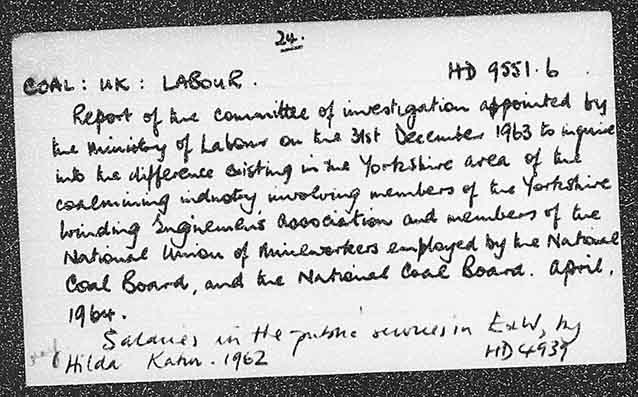 24.
COAL: UK: LABOUR. HD 9551.6
Report of the committee of investigation appointed by
the Ministry of Labour on the 31st December 1963 to inquire
into the difference existing in the Yorkshire area of the
coalmining industry involving members of the Yorkshire
Winding Enginemen's Association and members of the
National Union of Mineworkers employed by the National
Coal Board, and the National Coal Board. April,
1964.
Salaries in the public services in E&W, by
Hilda 1962 HD4939